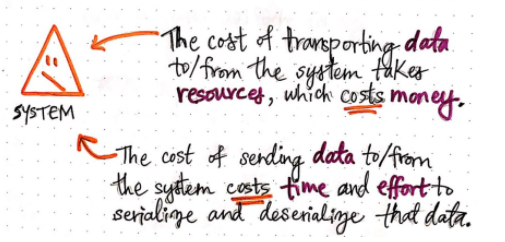 The cost of transporting data
to/from the system takes
resources, which costs money.
SYSTEM
The cost of sending data to/from
the system costs time and effort to
serialize and deserialize that data.